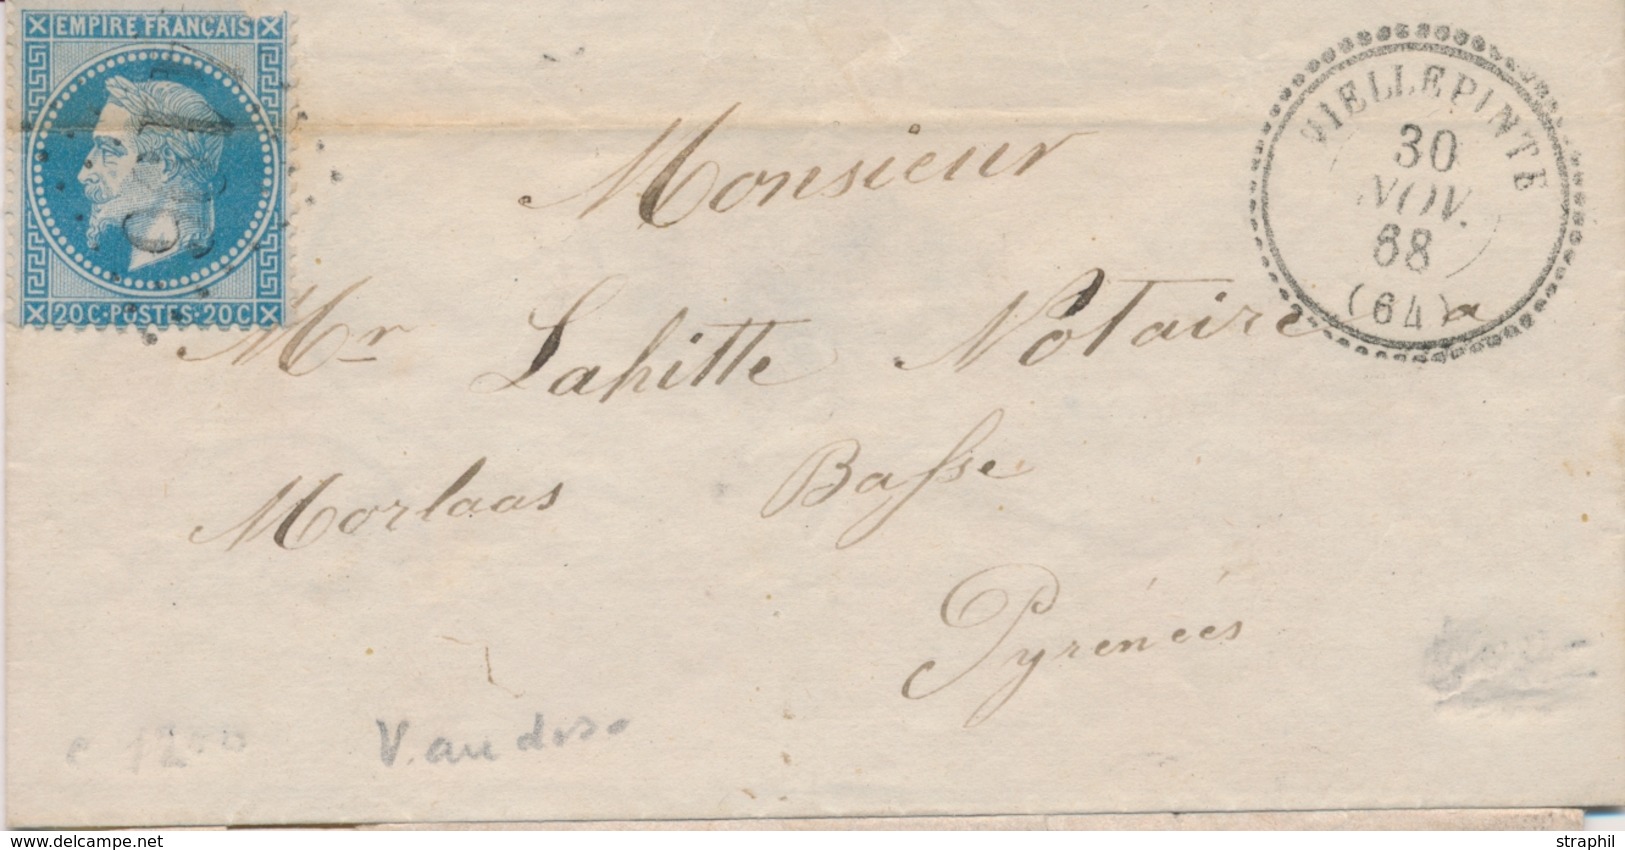 EMPIRE FRANÇAIS
20 C · POSTES · 20 C
VIELLEPINTE
30
NOV.
68
(64)
Monsieur
Mr Lahitte Notaire a
Morlaas Basse
Pyrénéés
V. au dos
delcampe.net
straphil